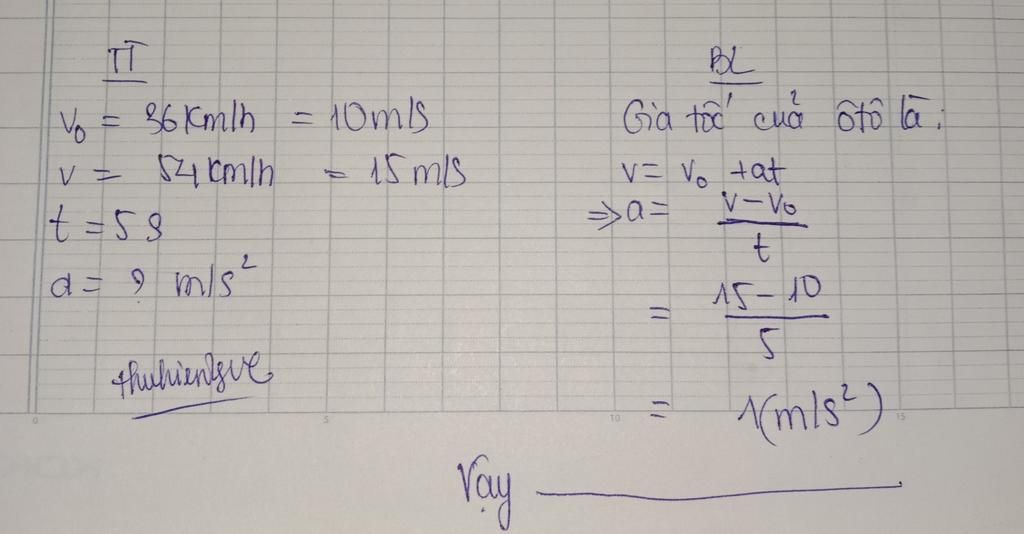 TT
v₀ = 36 Km/h = 10 m/s
v = 54 km/h = 15 m/s
t = 5 s
a = ? m/s²
thuhienlgvt
BL
Gia tốc của ôtô là:
v = v₀ + at
=> a = (v - v₀)/t
= (15 - 10)/5
= 1 (m/s²)
Vạy
0 5 10 15